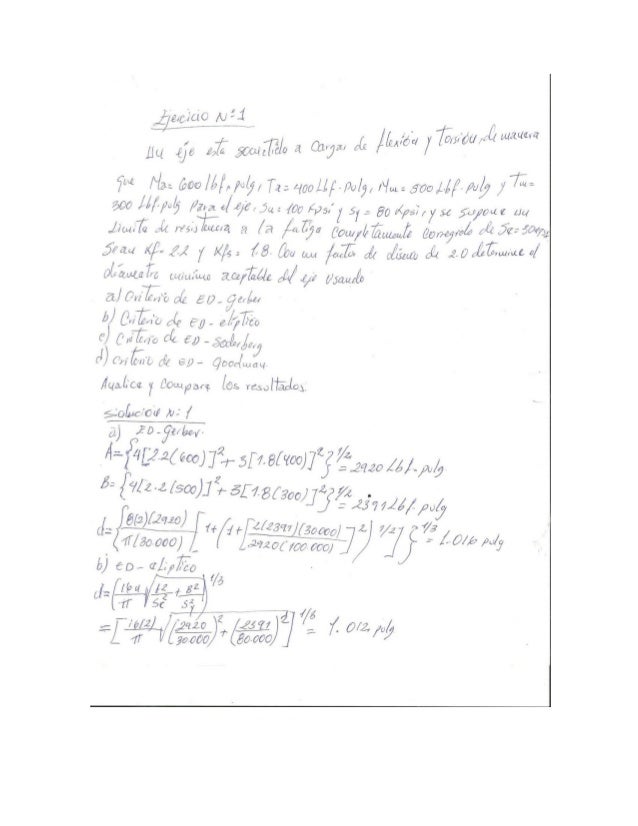 Ejercicio N°1
Un eje esta sometido a Cargas de flexión y Torsión, de manera
que Ma= 600 lbf, pulg, Ta= 400 Lbf-pulg, Mm= 500 Lbf-pulg y Tm=
300 Lbf-pulg Para el eje, Su= 100 Kpsi y Sy = 80 Kpsi, y se supone un
Limite de resistencia a la fatiga completamente corregido de Se= 30Kpsi
Sean Kf= 2.2 y Kfs= 1.8. Con un factor de diseño de 2.0 determine el
diametro minimo aceptable del eje usando
a) Criterio de ED- Gerber
b) Criterio de ED - eliptico
c) Criterio de ED - Soderberg
d) Criterio de ED - Goodman
Analice y compare los resultados.
Solucion N:1
a) ED-Gerber.
A= {4[2.2(600)]²+ 3[1.8(400)]²}^1/2 = 2920 Lbf-pulg
B= {4[2.2(500)]²+ 3[1.8(300)]²}^1/2 = 2391 Lbf.pulg
d= {8(2)(2920)/π(30.000) [1+(1+[2(2391)(30000)/2920(100 000)]²)^1/2]}^1/3 = 1.016 pulg
b) ED - eliptico
d= (16n/π √(A²/Se² + B²/Sy²))^1/3
= [16(2)/π √((2920/30.000)² + (2391/80.000)²)]^1/3 = 1.012 pulg